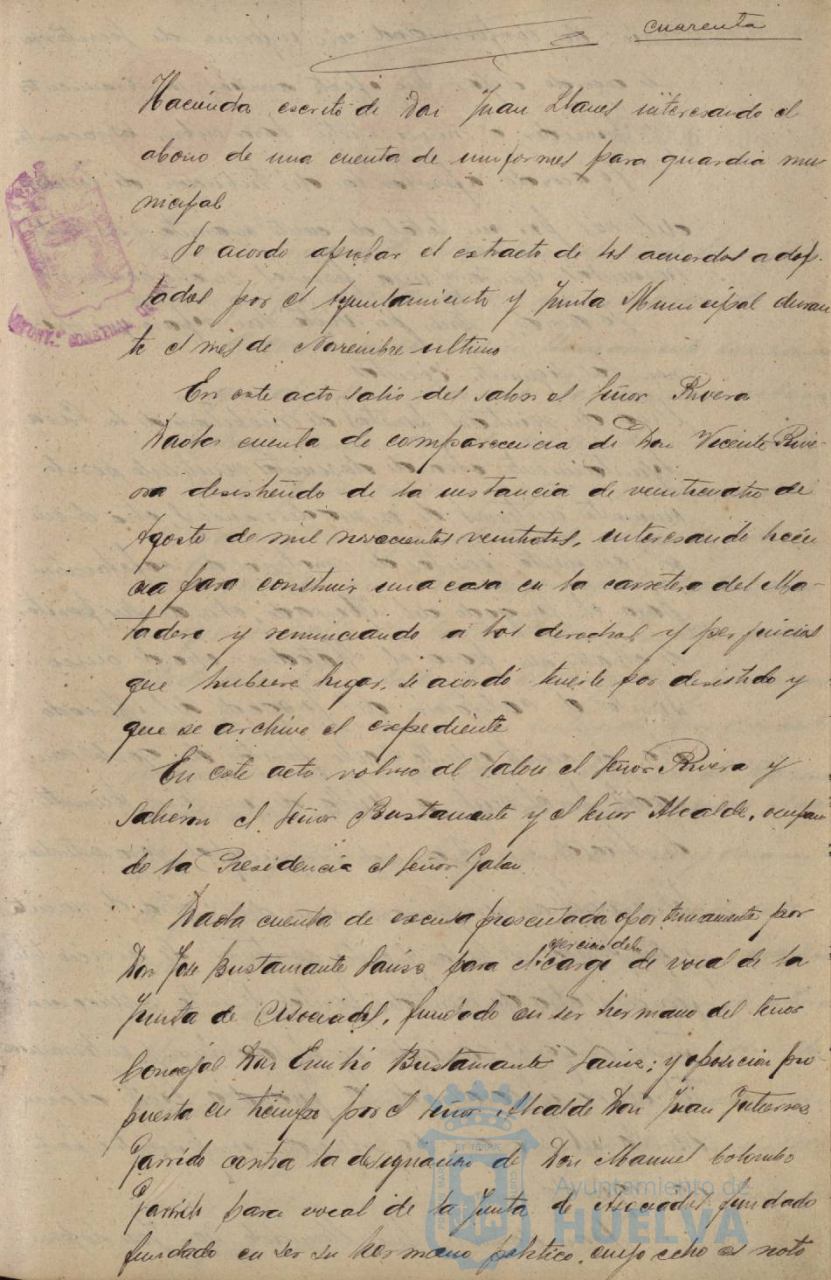 cuarenta
Hacienda escrito de Don Juan Llanes interesando el
abono de una cuenta de uniformes para guardia mu
nicipal
Se acordo aprobar el extracto de los acuerdos adop-
tados por el Ayuntamiento y Junta Municipal duran
te el mes de Noviembre ultimo
En este acto salio del salon el Señor Rivera
Dada cuenta de comparecencia de Don Vicente Rive-
ra desistiendo de la instancia de veinticuatro de
Agosto de mil novecientos veintidos, interesando licen
cia para construir una casa en la carretera del Ma-
tadero y renunciando a los derechos y perjuicios
que hubiere lugar, se acordó tenerle por desistido y
que se archive el expediente
En este acto volvio al salon el Señor Rivera y
salieron el Señor Bustamante y el Señor Alcalde, ocupan
do la Presidencia el Señor
Dada cuenta de excusa presentada oportunamente por
Don Jose Bustamante para el ejercicio del cargo de vocal de la
Junta de Asociados, fundado en ser hermano del Señor
Concejal Don Emilio Bustamante ; y oposicion pro
puesta en tiempo por el Señor Alcalde Don Juan Gutierrez
Garrido contra la designacion de Don Manuel Colombo
Garrido para vocal de la Junta de Asociados, fundado
fundado en ser su hermano politico, cuyo echo es noto
Ayuntamiento de
HUELVA